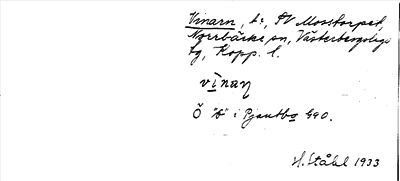 Vinarn, tr, SV Mosstorpet,
Norrbärke sn, Västerbergslags
fg, Kopp. l.
vinaη
Ö "b" i Pjantbo 990.
H. Ståhl 1933